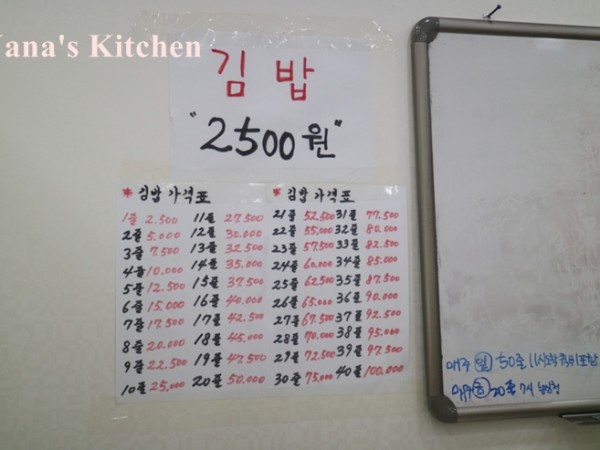 Yana's Kitchen
김밥
"2500원"
* 김밥 가격표
1줄 2.500 11줄 27.500
2줄 5.000 12줄 30.000
3줄 7.500 13줄 32.500
4줄 10.000 14줄 35.000
5줄 12.500 15줄 37.500
6줄 15.000 16줄 40.000
7줄 17.500 17줄 42.500
8줄 20.000 18줄 45.000
9줄 22.500 19줄 47.500
10줄 25.000 20줄 50.000
* 김밥 가격표
21줄 52.500 31줄 77.500
22줄 55.000 32줄 80.000
23줄 57.500 33줄 82.500
24줄 60.000 34줄 85.000
25줄 62.500 35줄 87.500
26줄 65.000 36줄 90.000
27줄 67.500 37줄 92.500
28줄 70.000 38줄 95.000
29줄 72.500 39줄 97.500
30줄 75.000 40줄 100.000
매주 월 50줄 11시
20줄 7시